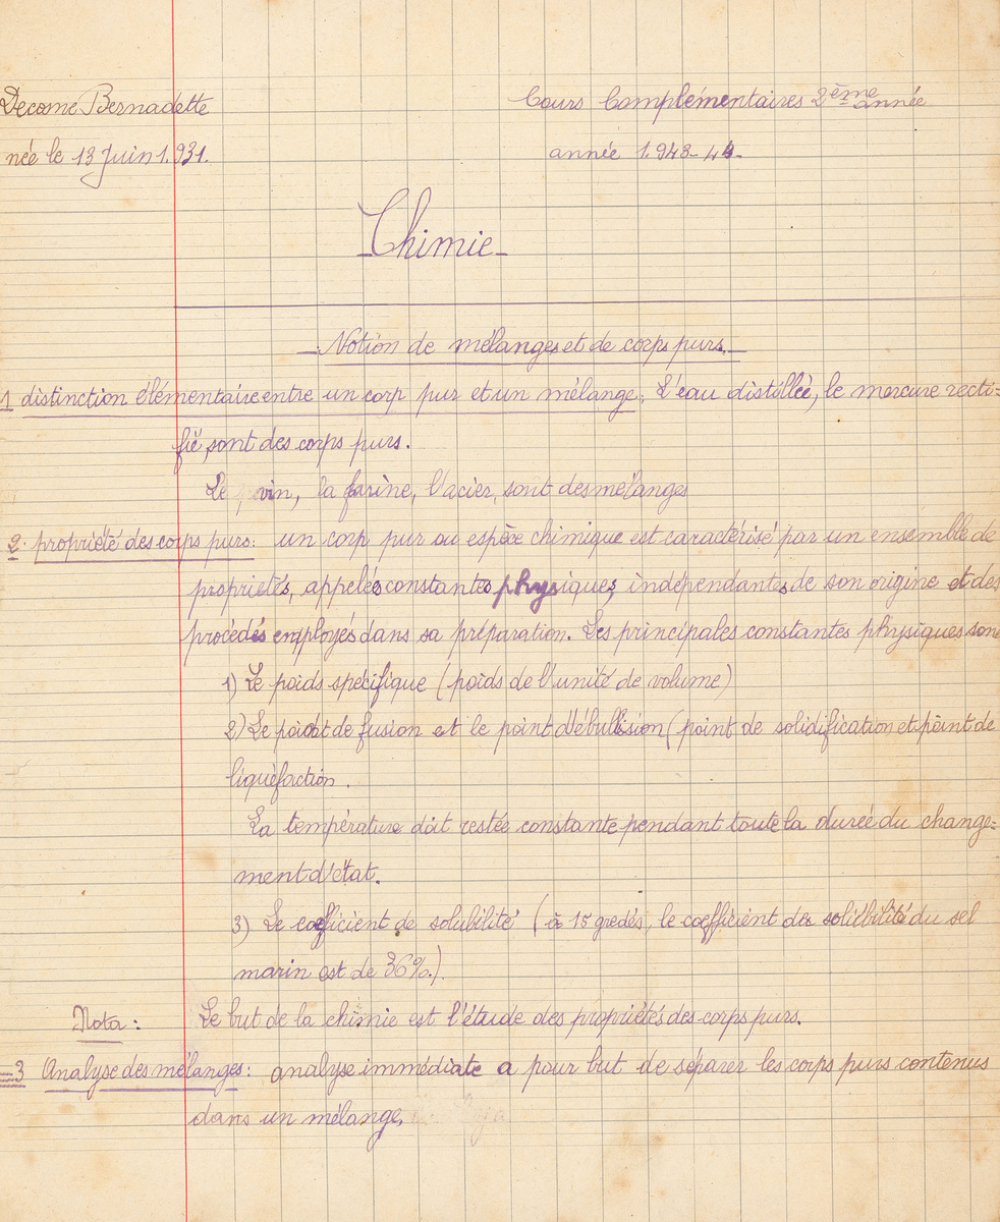 Decome Bernadette
Cours Complémentaires 2ème année
née le 13 Juin 1.931.
année 1.943-44.
Chimie
Notion de mélanges et de corps purs.
1 distinction élémentaire entre un corp pur et un mélange, L'eau distillée, le mercure recti=
fié, sont des corps purs.
Le vin, la farine, l'acier, sont des mélanges
2. propriété des corps purs: un corp pur ou espèce chimique est caractérisé par un ensemble de
propriétés, appelés constantes physiques, indépendantes de son origine et des
procédés employés dans sa préparation. Les principales constantes physiques son
1) Le poids spécifique (poids de l'unité de volume)
2) Le point de fusion et le point d'ébullision (point de solidification et point de
liquéfaction.
La température doit restée constante pendant toute la durée du change=
ment d'état.
3) Le coefficient de solubilité (à 15 gredés, le coefficient de solidbilité du sel
marin est de 36%.)
Nota: Le but de la chimie est l'étude des propriétés des corps purs.
3 Analyse des mélanges: analyse immédiate a pour but de séparer les corps purs contenus
dans un mélange,